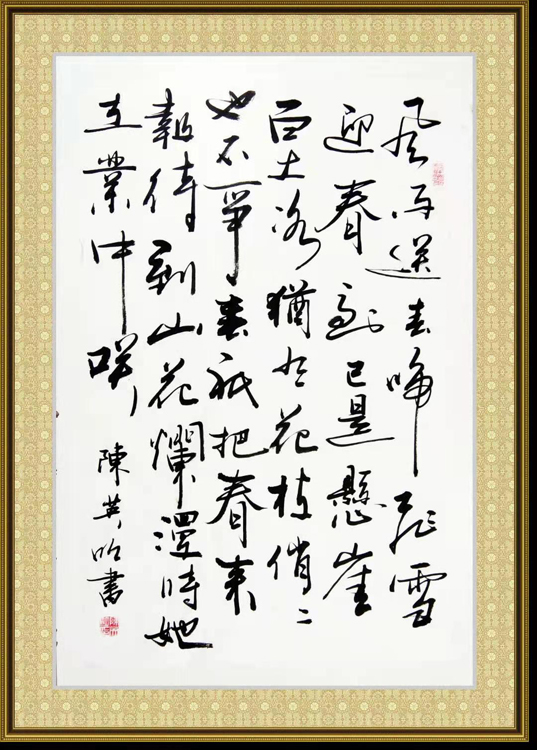 風雨送春歸飛雪
迎春到已是懸崖
百丈冰猶有花枝俏〻
也不爭春祇把春來
報待到山花爛漫時她
在叢中咲
陳英昭書